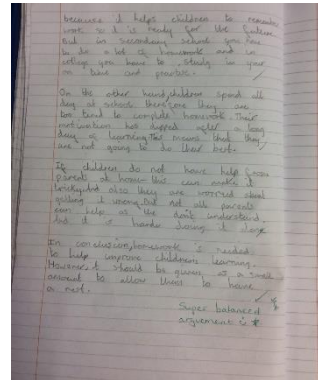 because it helps children to remember
work so it is ready for the future
but in secondary school you have
to do a lot of homework and in
college you have to study in your
own time and practise.
On the other hand, children spend all
day at school therefore they are
too tired to complete homework. Their
motivation has dropped after a long
day of learning. This means that they
are not going to do their best.
If children do not have help from
parents at home this can make it
tricky and also they are worried about
getting it wrong but not all parents
can help as the don't understand,
but it is harder doing it alone
In conclusion, homework is needed
to help improve childrens learning.
However, it should be given at a small
amount to allow them to have
a rest.
Super balanced
arguement